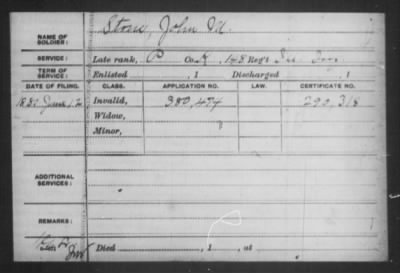 NAME OF SOLDIER: Stone, John M.
SERVICE: Late rank, P Co. K, 148 Reg't Ind. Inf
TERM OF SERVICE: Enlisted , 1 Discharged , 1
DATE OF FILING. CLASS. APPLICATION NO. LAW. CERTIFICATE NO.
1880 June 12 Invalid, 380,474 290,318
Widow,
Minor,
ADDITIONAL SERVICES:
REMARKS:
Died , 1 , at